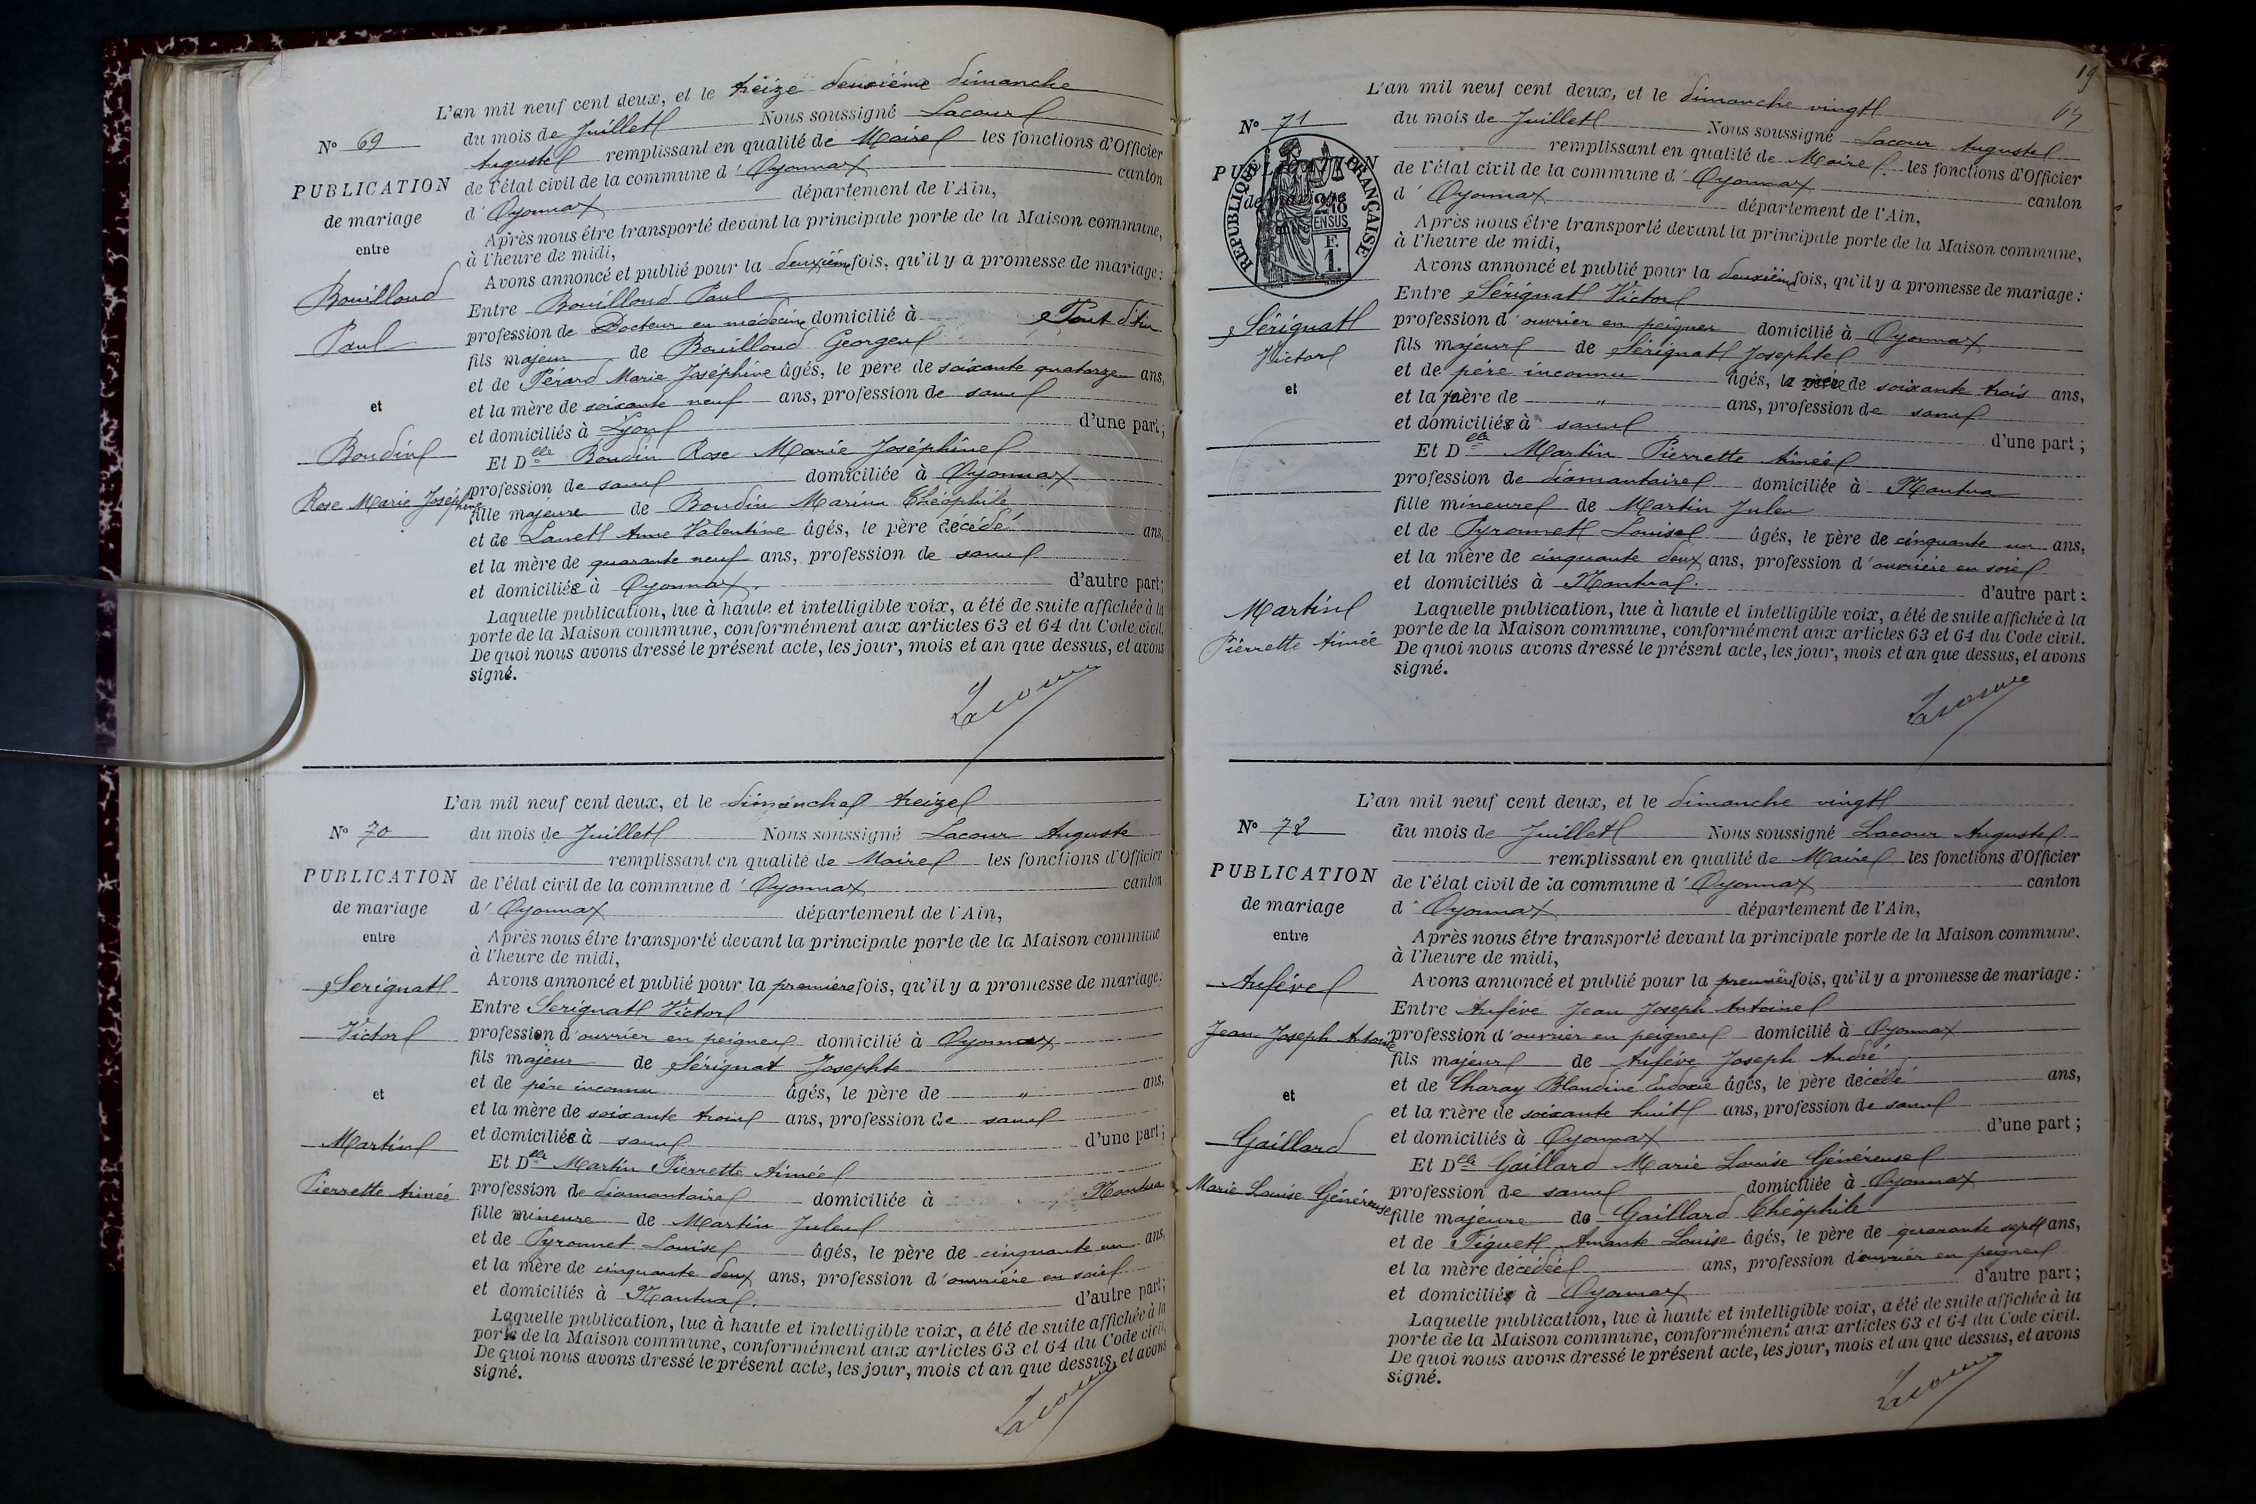 L'an mil neuf cent deux, et le treize deuxième dimanche
du mois de Juillet Nous soussigné Lacour
Auguste remplissant en qualité de Maire les fonctions d'Officier
de l'état civil de la commune d' Oyonnax canton
d' Oyonnax département de l'Ain,
Après nous être transporté devant la principale porte de la Maison commune,
à l'heure de midi,
Avons annoncé et publié pour la deuxième fois, qu'il y a promesse de mariage:
Entre Bouilloud Paul
profession de Docteur en médecine domicilié à Pont d'Ain
fils majeur de Bouilloud Georges
et de Pérard Marie Joséphine âgés, le père de soixante quatorze ans,
et la mère de soixante neuf ans, profession de sans
et domiciliés à Lyon d'une part;
Et Delle Boudin Rose Marie Joséphine
profession de sans domiciliée à Oyonnax
fille majeure de Boudin Marin Théophile
et de Lanet Anne Valentine âgés, le père décédé ans,
et la mère de quarante neuf ans, profession de sans
et domiciliée à Oyonnax. d'autre part;
Laquelle publication, lue à haute et intelligible voix, a été de suite affichée à la
porte de la Maison commune, conformément aux articles 63 et 64 du Code civil.
De quoi nous avons dressé le présent acte, les jour, mois et an que dessus, et avons
signé.
Lacour
N° 69
PUBLICATION
de mariage
entre
Bouilloud
Paul
et
Boudin
Rose Marie Joséphine
L'an mil neuf cent deux, et le dimanche treize
du mois de Juillet Nous soussigné Lacour Auguste
remplissant en qualité de Maire les fonctions d'Officier
de l'état civil de la commune d' Oyonnax canton
d' Oyonnax département de l'Ain,
Après nous être transporté devant la principale porte de la Maison commune
à l'heure de midi,
Avons annoncé et publié pour la première fois, qu'il y a promesse de mariage:
Entre Serignat Victor
profession d'ouvrier en peignes domicilié à Oyonnax
fils majeur de Sérignat Josephte
et de père inconnu âgés, le père de " ans,
et la mère de soixante trois ans, profession de sans
et domiciliée à sans d'une part;
Et Delle Martin Pierrette Aimée
profession de diamantaire domiciliée à Nantua
fille mineure de Martin Jules
et de Pyronnet Louise âgés, le père de cinquante un ans,
et la mère de cinquante deux ans, profession d'ouvrière en soie
et domiciliés à Nantua. d'autre part;
Laquelle publication, lue à haute et intelligible voix, a été de suite affichée à la
porte de la Maison commune, conformément aux articles 63 et 64 du Code civil.
De quoi nous avons dressé le présent acte, les jour, mois et an que dessus, et avons
signé.
Lacour
N° 70
PUBLICATION
de mariage
entre
Serignat
Victor
et
Martin
Pierrette Aimée
19
L'an mil neuf cent deux, et le dimanche vingt
du mois de Juillet Nous soussigné Lacour Auguste
remplissant en qualité de Maire les fonctions d'Officier
de l'état civil de la commune d' Oyonnax canton
d' Oyonnax département de l'Ain,
Après nous être transporté devant la principale porte de la Maison commune,
à l'heure de midi,
Avons annoncé et publié pour la deuxième fois, qu'il y a promesse de mariage:
Entre Sérignat Victor
profession d'ouvrier en peignes domicilié à Oyonnax
fils majeur de Sérignat Josephte
et de père inconnu âgés, la mère de soixante trois ans,
et la père de " ans, profession de sans
et domiciliée à sans d'une part;
Et Delle Martin Pierrette Aimée
profession de diamantaire domiciliée à Nantua
fille mineure de Martin Jules
et de Pyronnet Louise âgés, le père de cinquante un ans,
et la mère de cinquante deux ans, profession d'ouvrière en soie
et domiciliés à Nantua. d'autre part:
Laquelle publication, lue à haute et intelligible voix, a été de suite affichée à la
porte de la Maison commune, conformément aux articles 63 et 64 du Code civil.
De quoi nous avons dressé le présent acte, les jour, mois et an que dessus, et avons
signé.
Lacour
N° 71
PUBLICATION
de mariage
RÉPUBLIQUE FRANÇAISE
EN SUS
F.
1.
Sérignat
Victor
et
Martin
Pierrette Aimée
L'an mil neuf cent deux, et le dimanche vingt
du mois de Juillet Nous soussigné Lacour Auguste
remplissant en qualité de Maire les fonctions d'Officier
de l'état civil de la commune d' Oyonnax canton
d' Oyonnax département de l'Ain,
Après nous être transporté devant la principale porte de la Maison commune.
à l'heure de midi,
Avons annoncé et publié pour la première fois, qu'il y a promesse de mariage:
Entre Aufève Jean Joseph Antoine
profession d'ouvrier en peignes domicilié à Oyonnax
fils majeur de Aufève Joseph André
et de Charay Blandine Eudoxie âgés, le père décédé ans,
et la mère de soixante huit ans, profession de sans
et domiciliés à Oyonnax d'une part;
Et Delle Gaillard Marie Louise Généreuse
profession de sans domiciliée à Oyonnax
fille majeure de Gaillard Théophile
et de Piquet Amante Louise âgés, le père de quarante sept ans,
et la mère décédée ans, profession d'ouvrier en peignes
et domiciliés à Oyonnax d'autre part;
Laquelle publication, lue à haute et intelligible voix, a été de suite affichée à la
porte de la Maison commune, conformément aux articles 63 et 64 du Code civil.
De quoi nous avons dressé le présent acte, les jour, mois et an que dessus, et avons
signé.
Lacour
N° 72
PUBLICATION
de mariage
entre
Aufève
Jean Joseph Antoine
et
Gaillard
Marie Louise Généreuse